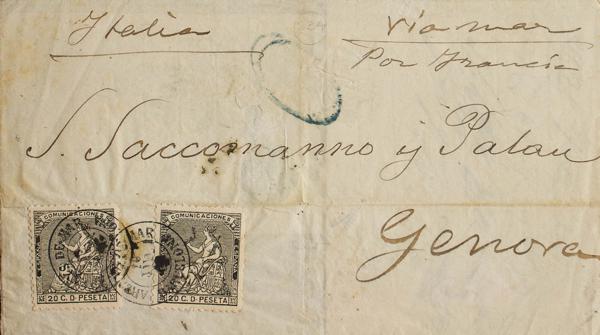 Italia
Via mar
Por Francia
S. Saccomanno y Palau
Genova
COMUNICACIONES
20 C. D PESETA
COMUNICACIONES
20 C. D PESETA